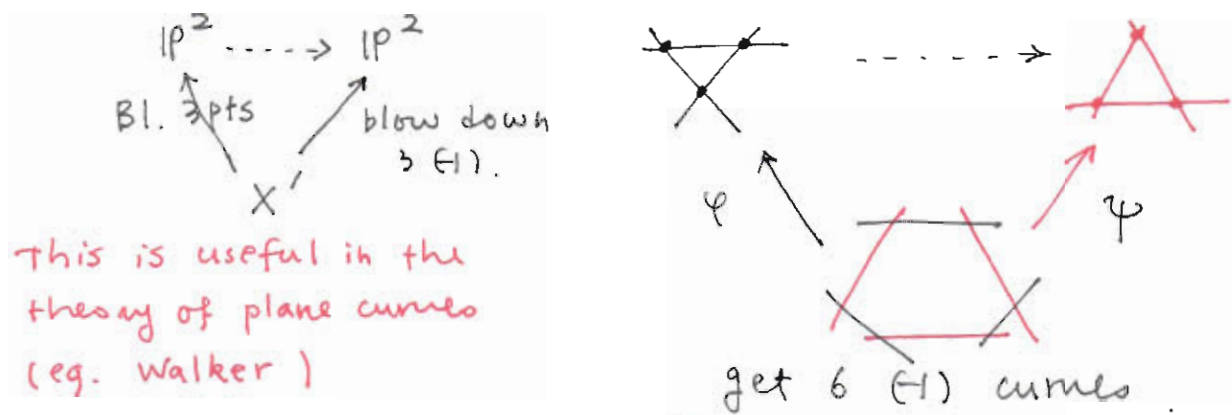 IP² ----> IP²
Bl. 3 pts
blow down
3 (-1).
X
This is useful in the
theory of plane curves
(eg. Walker)
φ
ψ
get 6 (-1) curves.